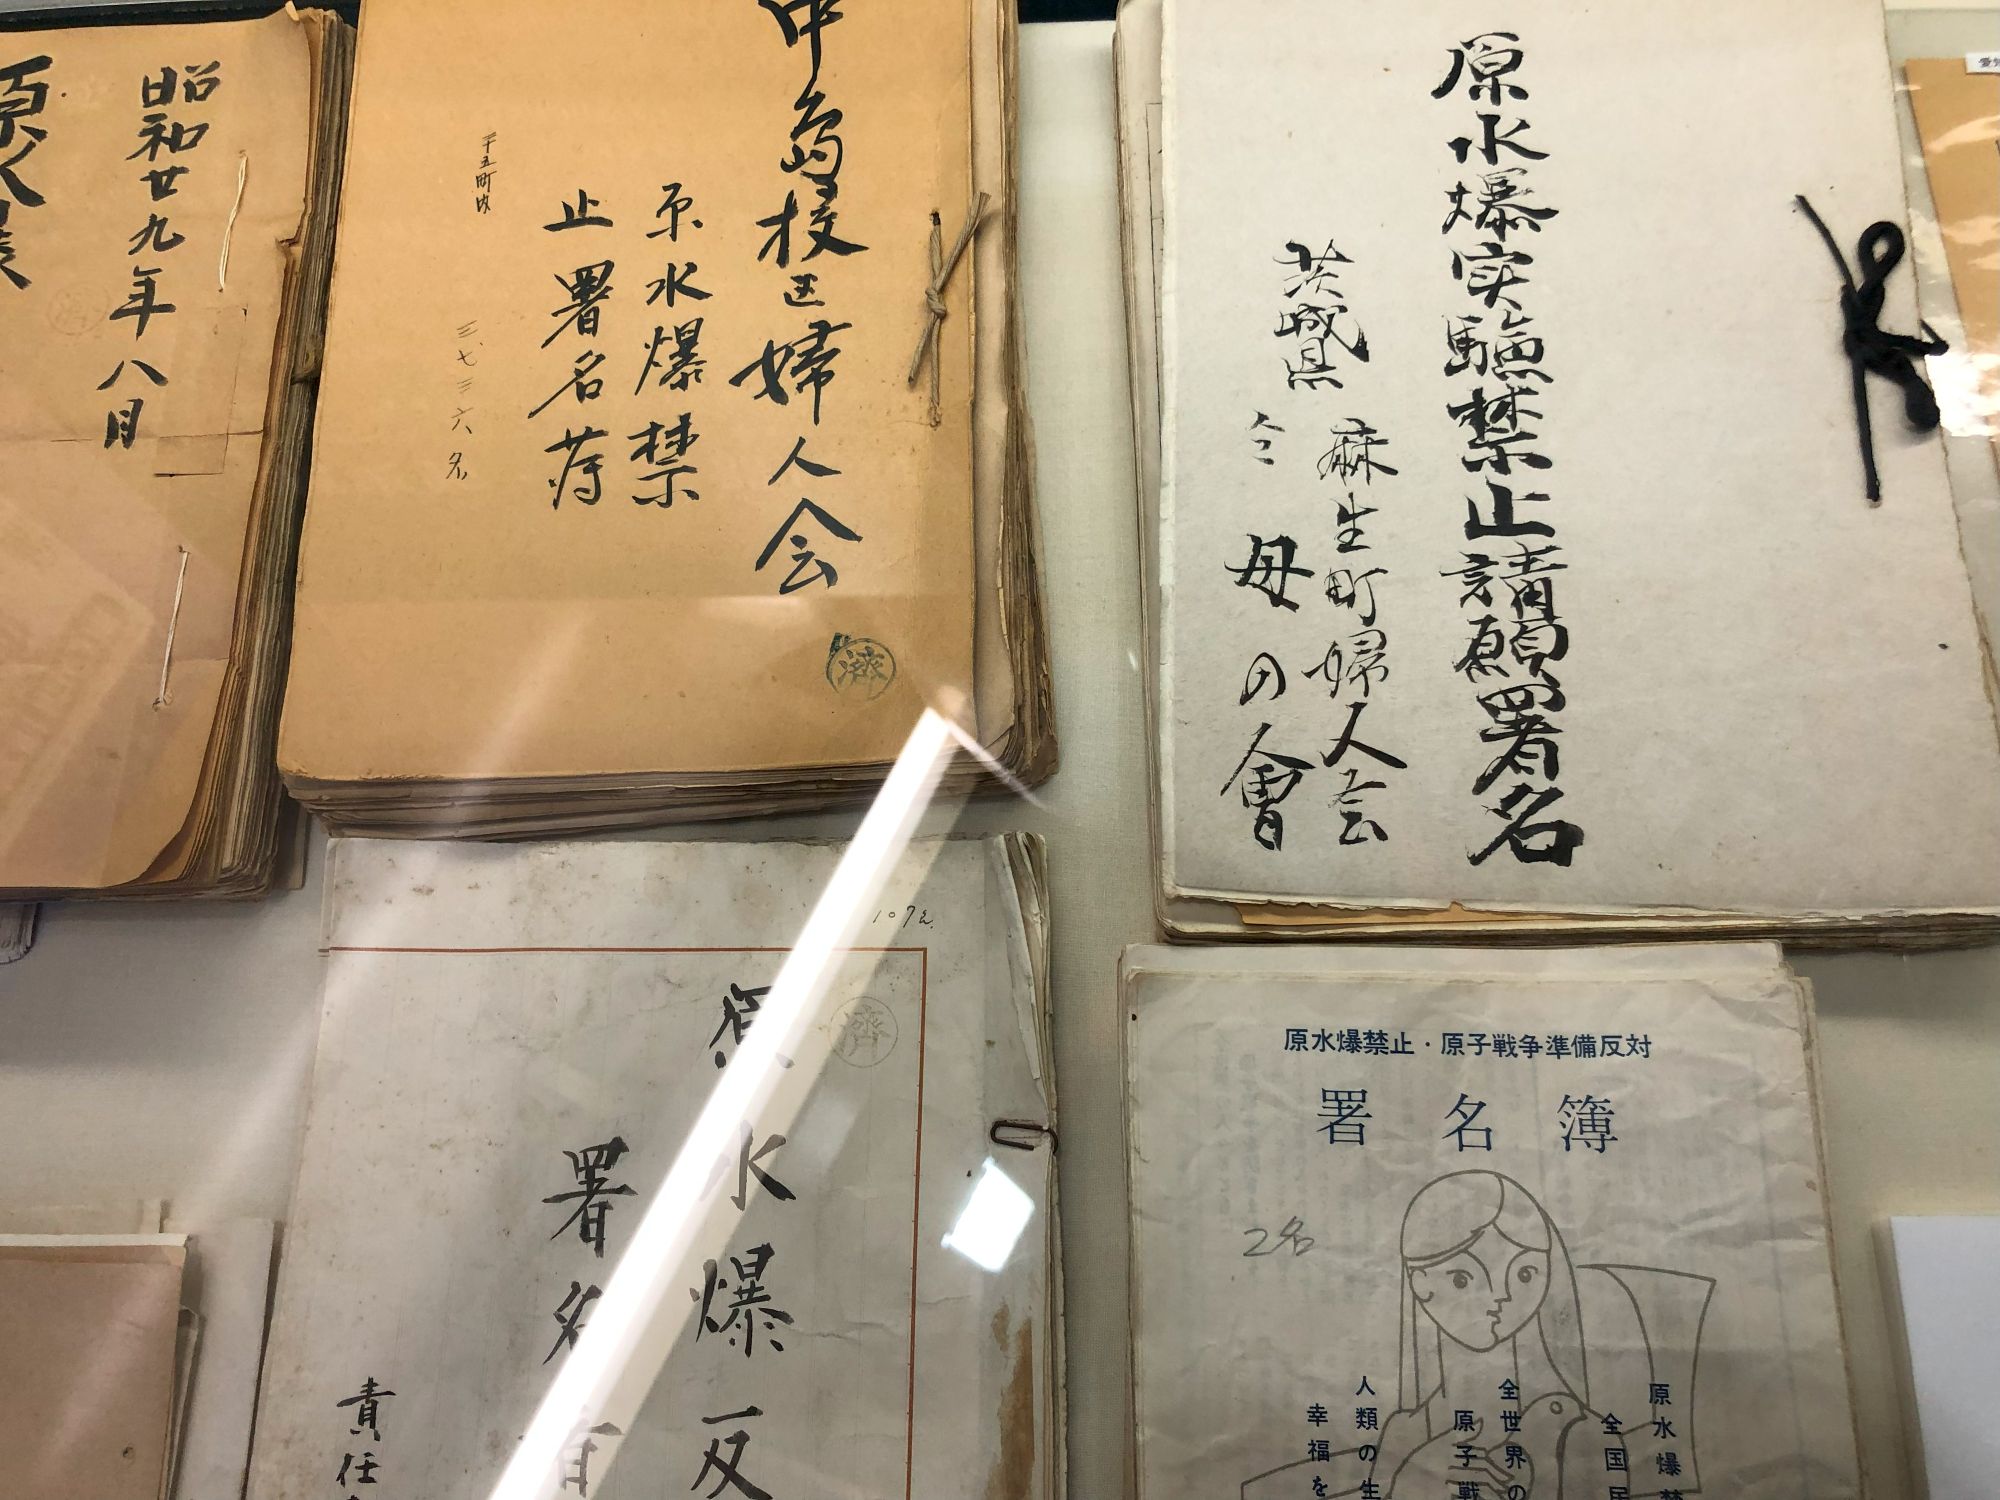 昭和廿九年八月
中島校区婦人会
原水爆禁
止署名簿
十五町内
三、七三六名
濟
原水爆実驗禁止請願署名
茨城県
麻生町婦人会
仝 母の會
原水爆反
署名
責任
濟
原水爆禁止・原子戦争準備反対
署名簿
2名
原水爆禁
全国民
全世界の
原子戦
人類の生
幸福を